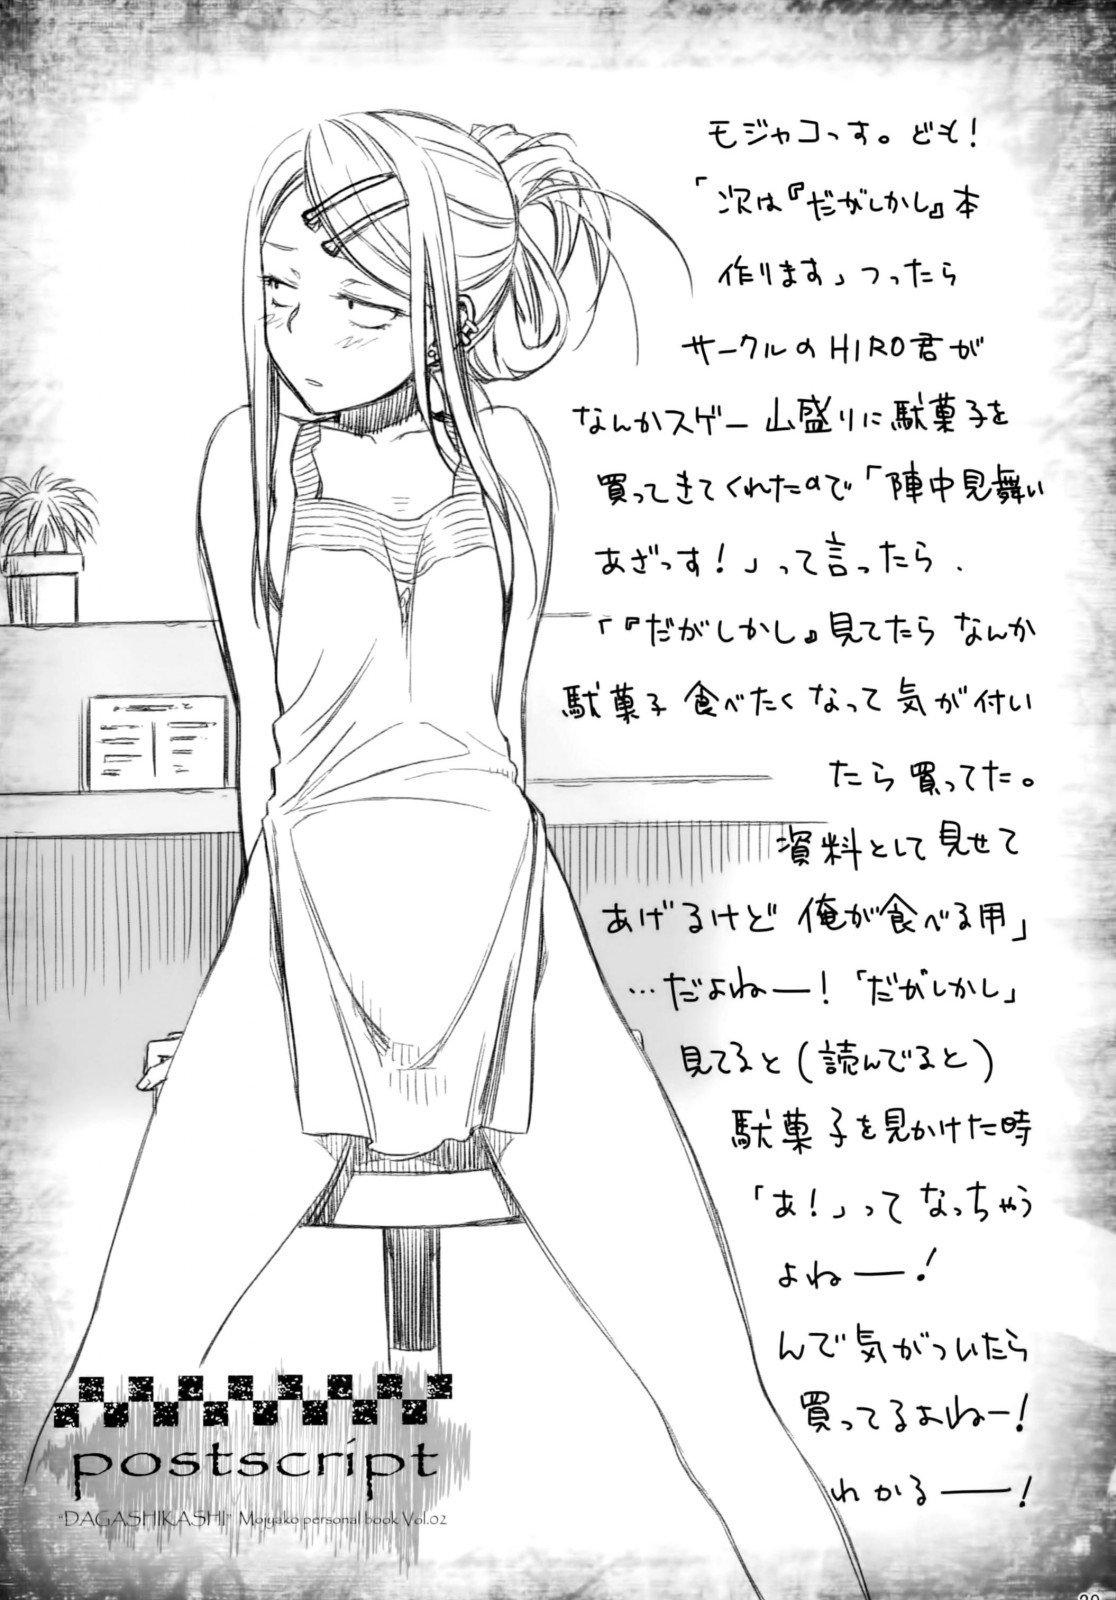 モジャコっす。ども!
「次は『だがしかし』本
作ります」つったら
サークルのHIRO君が
なんかスゲー山盛りに駄菓子を
買ってきてくれたので「陣中見舞い
あざっす!」って言ったら、
「『だがしかし』見てたらなんか
駄菓子食べたくなって気が付い
たら買ってた。
資料として見せて
あげるけど俺が食べる用」
…だよねー!「だがしかし」
見てると(読んでると)
駄菓子を見かけた時
「あ!」ってなっちゃう
よねー!
んで気がついたら
買ってるよねー!
わかるー!
postscript
"DAGASHIKASHI" Mojyako personal book Vol.02